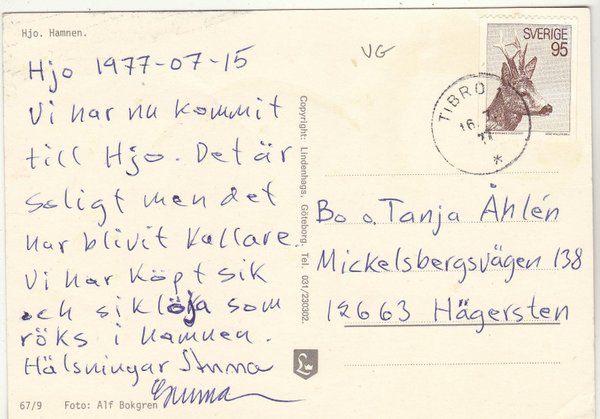 Hjo. Hamnen.
Hjo 1977-07-15
Vi har nu kommit
till Hjo. Det är
soligt men det
har blivit kallare.
Vi har köpt sik
och siklöja som
röks i hamnen.
Hälsningar Anna
67/9 Foto: Alf Bokgren
Copyright: Lindenhags, Göteborg. Tel. 031/230302.
VG
SVERIGE
95
TIBRO
16.7
77
*
Bo o. Tanja Åhlén
Mickelsbergsvägen 138
12663 Hägersten